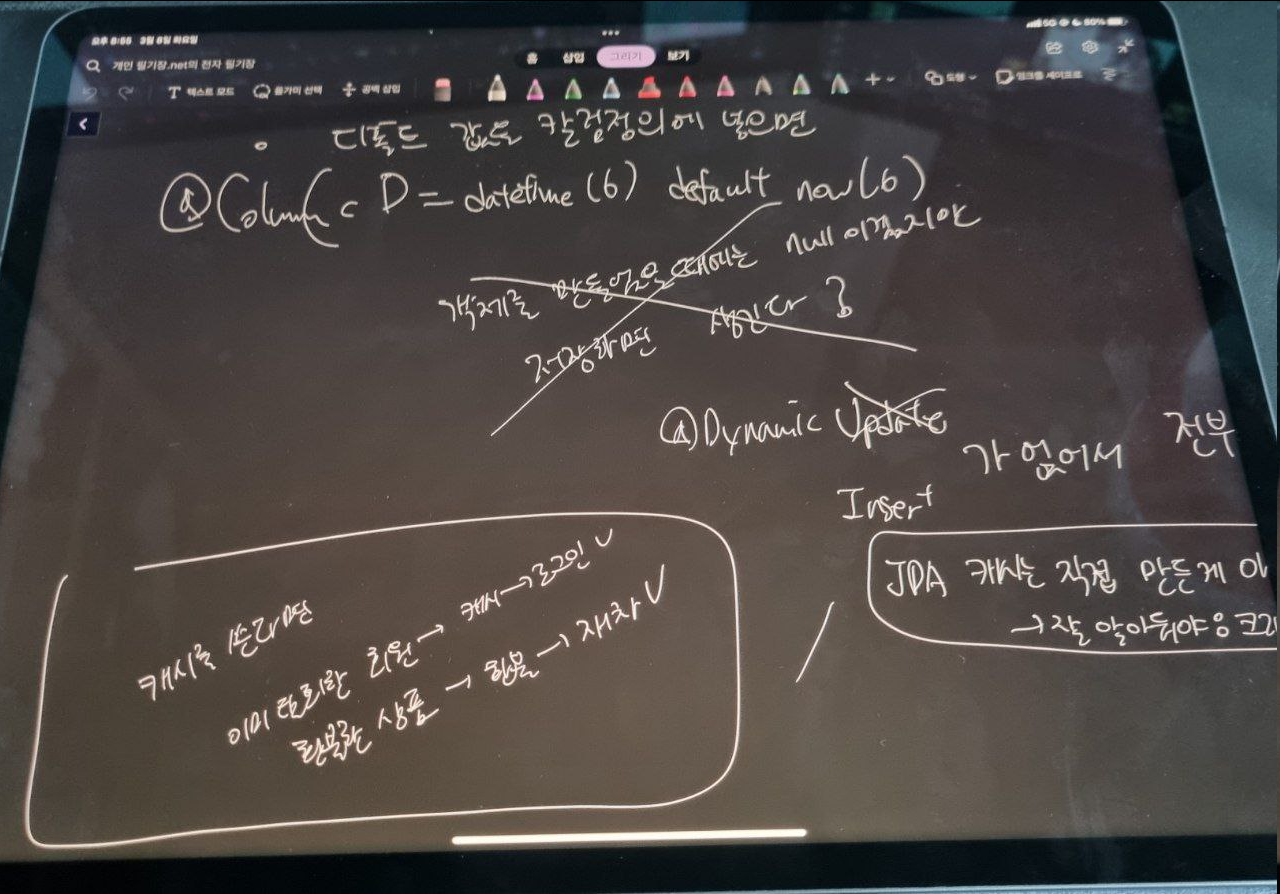 오후 8:55 3월 6일 화요일
5G 80%
개인 필기장.net의 전자 필기장
홈 삽입 그리기 보기
텍스트 모드 올가미 선택 공백 삽입 도형
디폴드 값을 칼럼정의에 넣으면
@Column( c D = datetime(6) default now(6)
객체를 만들었을 때에는 null 이겠지만
저장하면 생긴다?
@Dynamic Update
가 없어서 전부
Insert
JPA 캐시는 직접 만든게 아
→ 잘 알아둬야응
캐시를 쓴다면
이미 탈퇴한 회원 → 캐시 → 로그인 ✓
환불한 상품 → 환불 → 재차 ✓